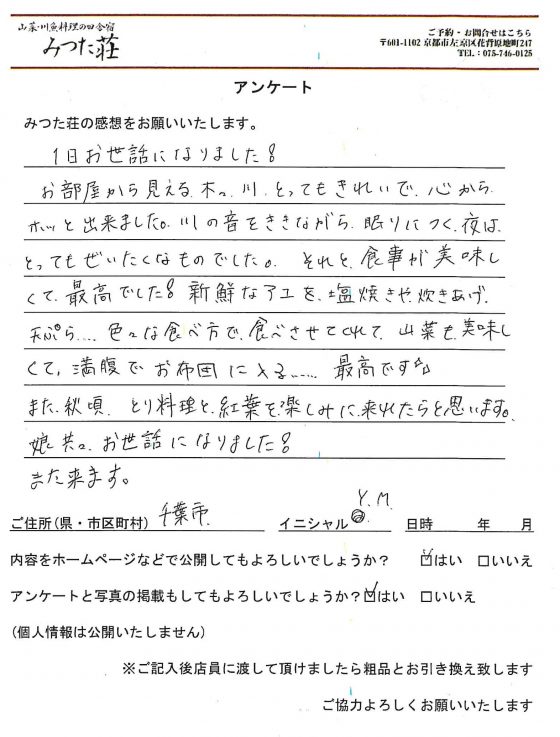 山菜・川魚料理の田舎宿
みつた荘
ご予約・お問合せはこちら
〒601-1102 京都市左京区花背原地町247
TEL：075-746-0125
アンケート
みつた荘の感想をお願いいたします。
1日お世話になりました!
お部屋から見える木々、川、とってもきれいで、心から
ホッと出来ました。川の音をききながら、眠りにつく、夜は、
とってもぜいたくなものでした。それと、食事が美味し
くて、最高でした!新鮮なアユを、塩焼きや炊きあげ、
天ぷら....色々な食べ方で、食べさせてくれて、山菜も、美味し
くて、満腹でお布団に入る......最高です♪
また、秋頃、とり料理と、紅葉を楽しみに、来れたらと思います。
娘共々、お世話になりました!
また来ます。
ご住所(県・市区町村) 千葉市 イニシャル Y.M. 日時 年 月
内容をホームページなどで公開してもよろしいでしょうか? ☑はい □いいえ
アンケートと写真の掲載もしてもよろしいでしょうか?☑はい □いいえ
(個人情報は公開いたしません)
※ご記入後店員に渡して頂けましたら粗品とお引き換え致します
ご協力よろしくお願いいたします